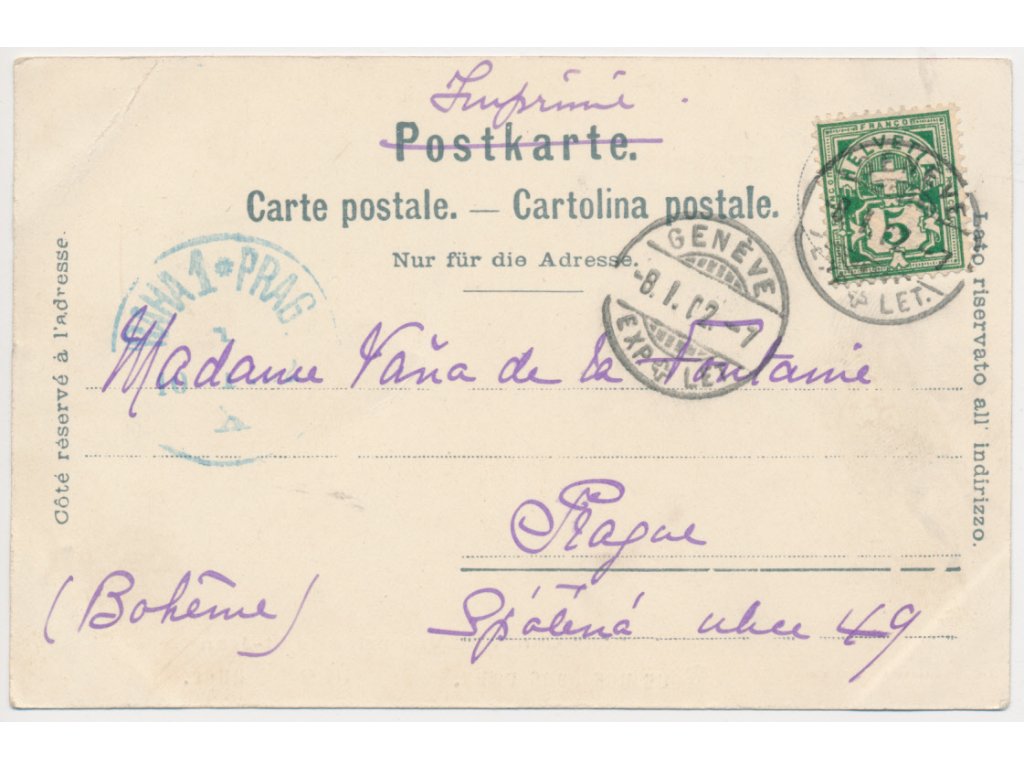 Imprimé.
Postkarte.
Carte postale. — Cartolina postale.
Nur für die Adresse.
Côté réservé à l'adresse.
Lato riservato all' indirizzo.
FRANCO
HELVETIA
5
LET.
GENÈVE
-8.I.02.-7
EXP. LET.
PRAHA 1 * PRAG
Madame Váňa de la Fontaine
Prague
(Bohême)
Spálená ulice 49